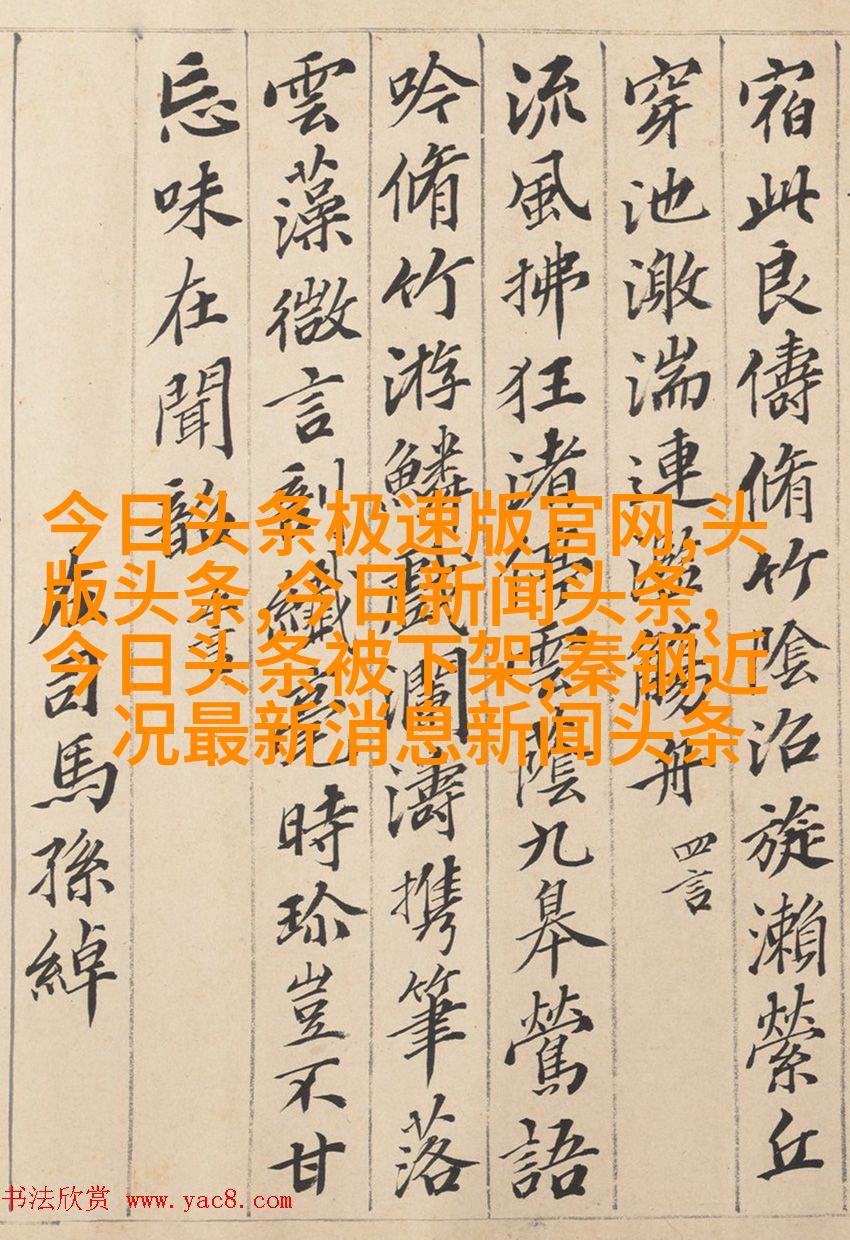 宿此良儔脩竹陰沼旋瀨縈丘
穿池激湍連濫觴舟 四言
流風拂狂渚停雲蔭九皋鶯語
吟脩竹游鱗戲瀾濤携筆落
雲藻微言剖纖毫時珎豈不甘
忘味在聞韶
司馬孫綽
今日头条极速版官网,头
版头条,今日新闻头条,
今日头条被下架,秦钢近
况最新消息新闻头条
书法欣赏 www.yac8.com